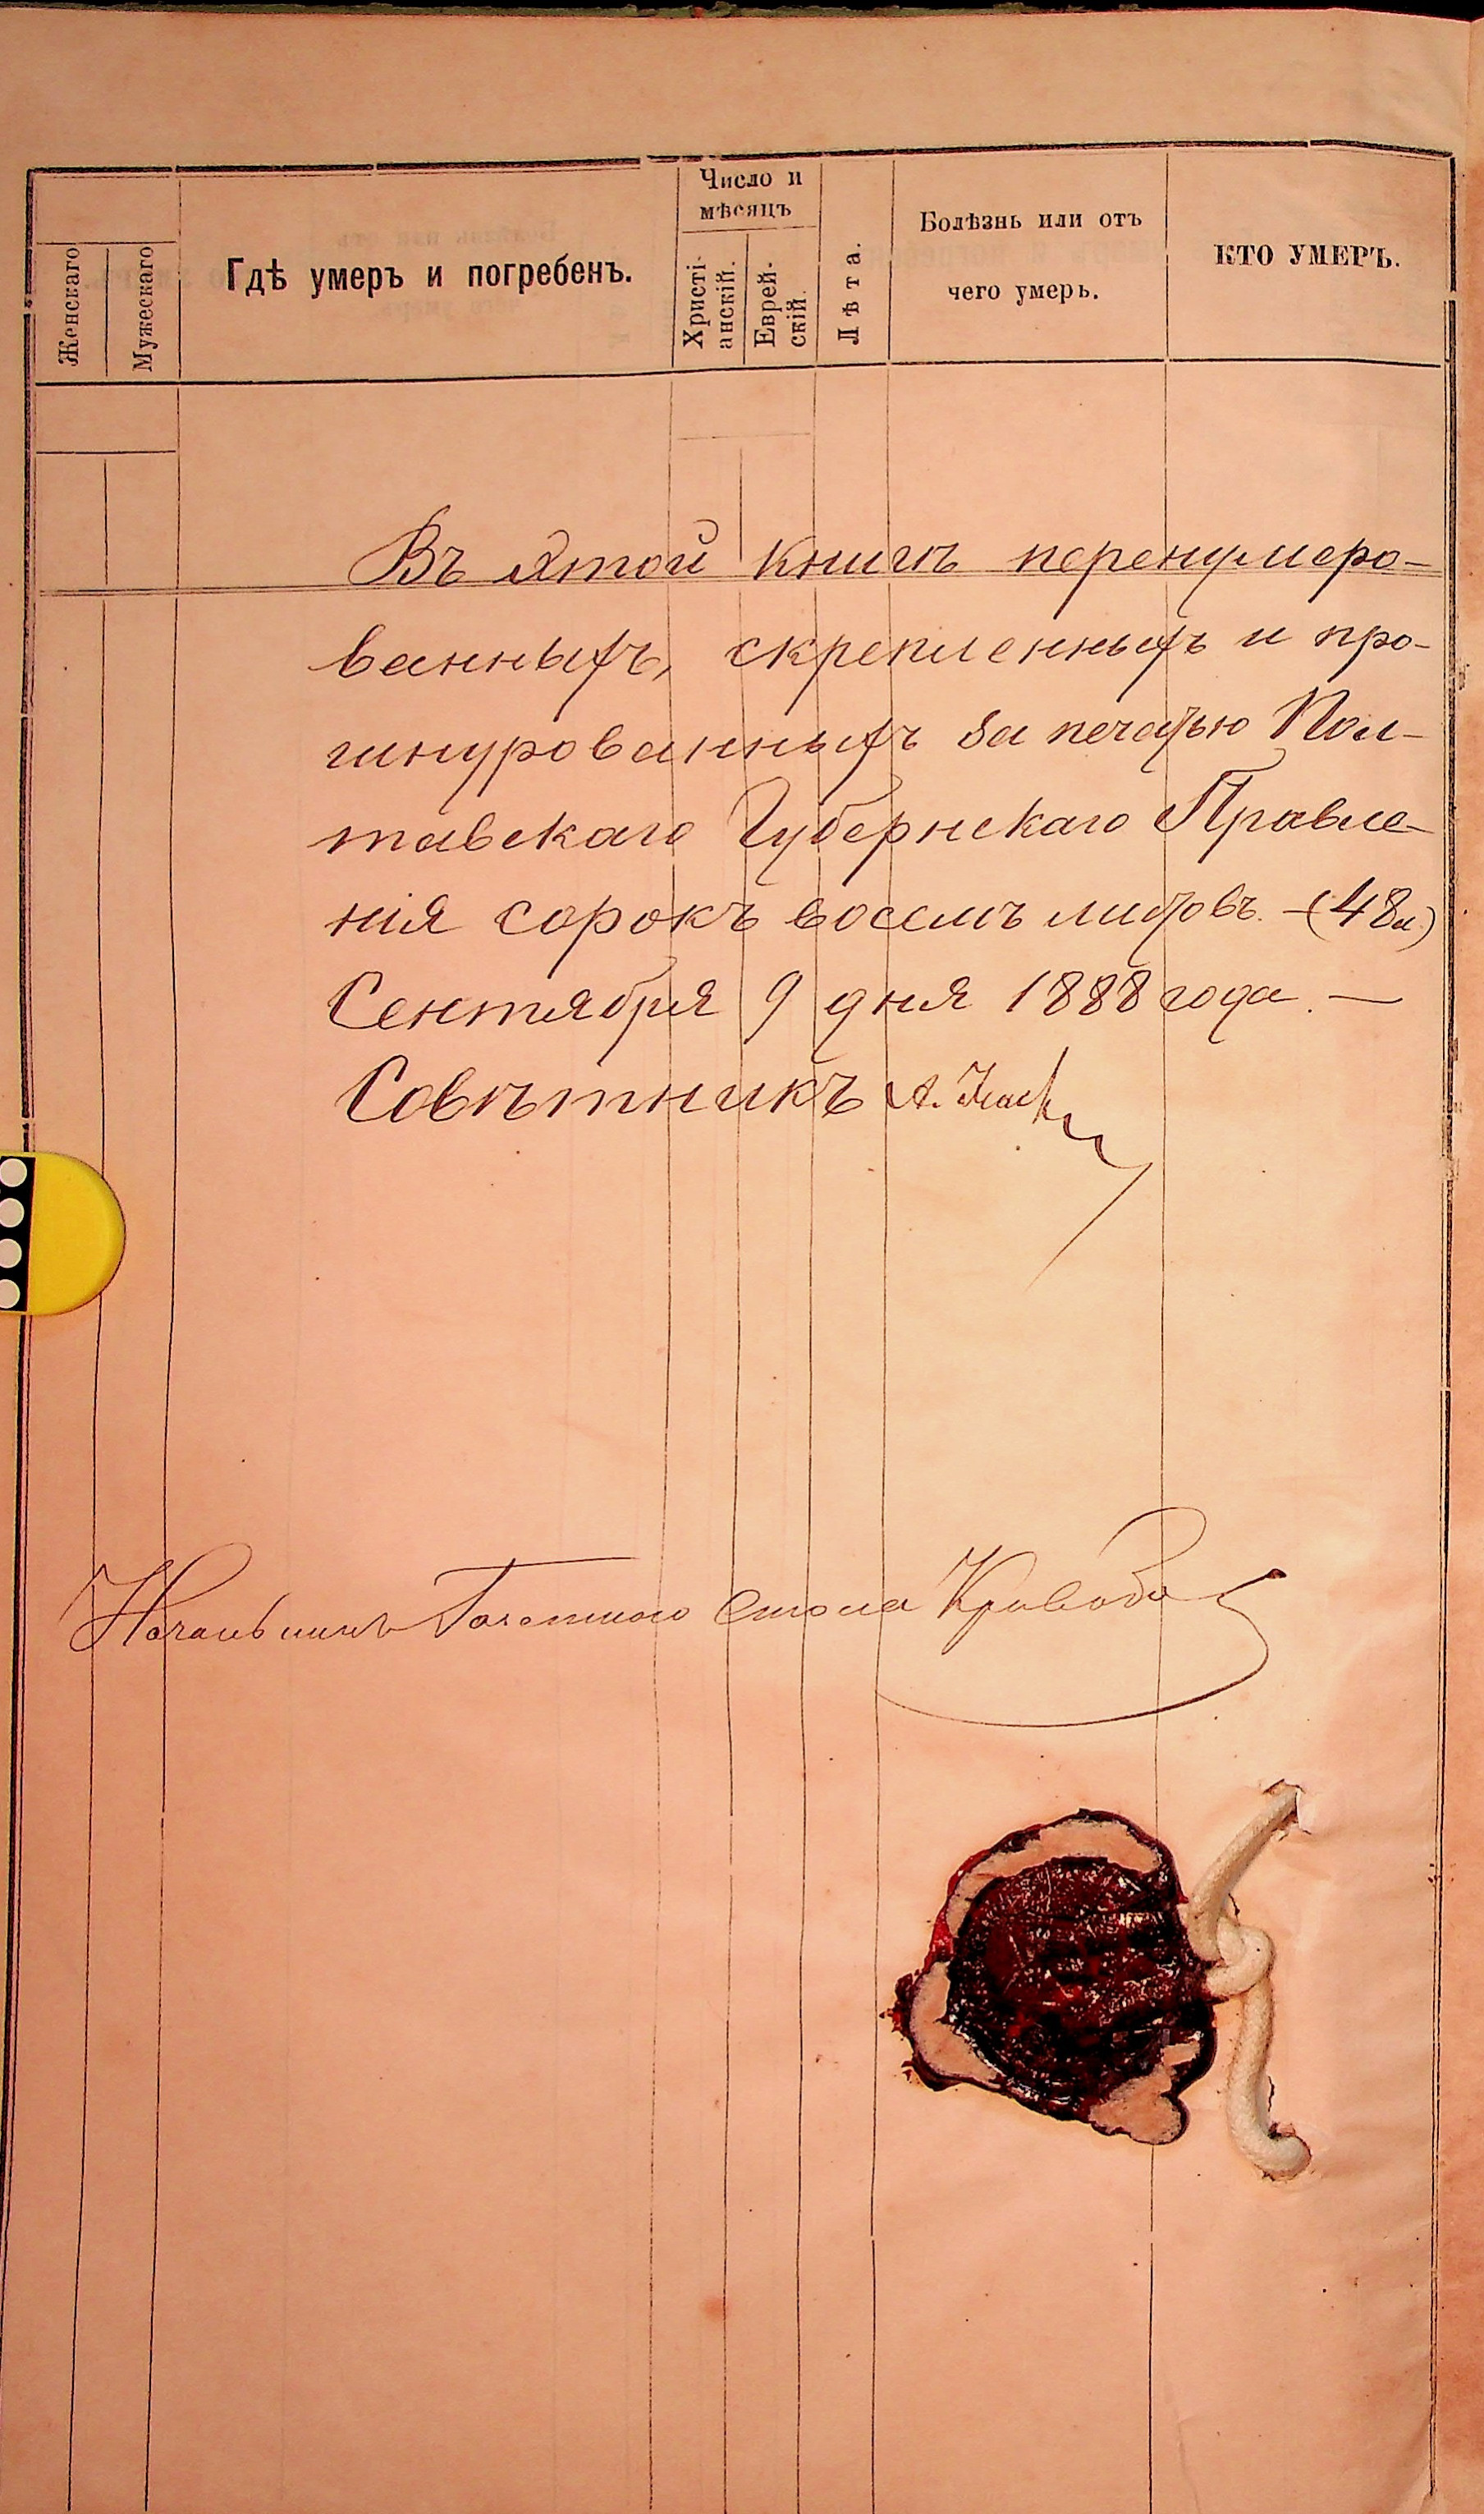 Женскаго
Мужескаго
Гдѣ умеръ и погребенъ.
Число и
мѣсяцъ
Христі-
анскій.
Еврей-
скій.
Лѣта.
Болѣзнь или отъ
чего умеръ.
КТО УМЕРЪ.
Въ этой книгѣ перенумеро-
ванныхъ, скрепленныхъ и про-
шнурованныхъ за печатью Пол-
тавскаго Губернскаго Правле-
нія сорокъ восемь листовъ. - (48 л.)
Сентября 9 дня 1888 года. —
Совѣтникъ А.
Начальникъ Газетнаго Стола